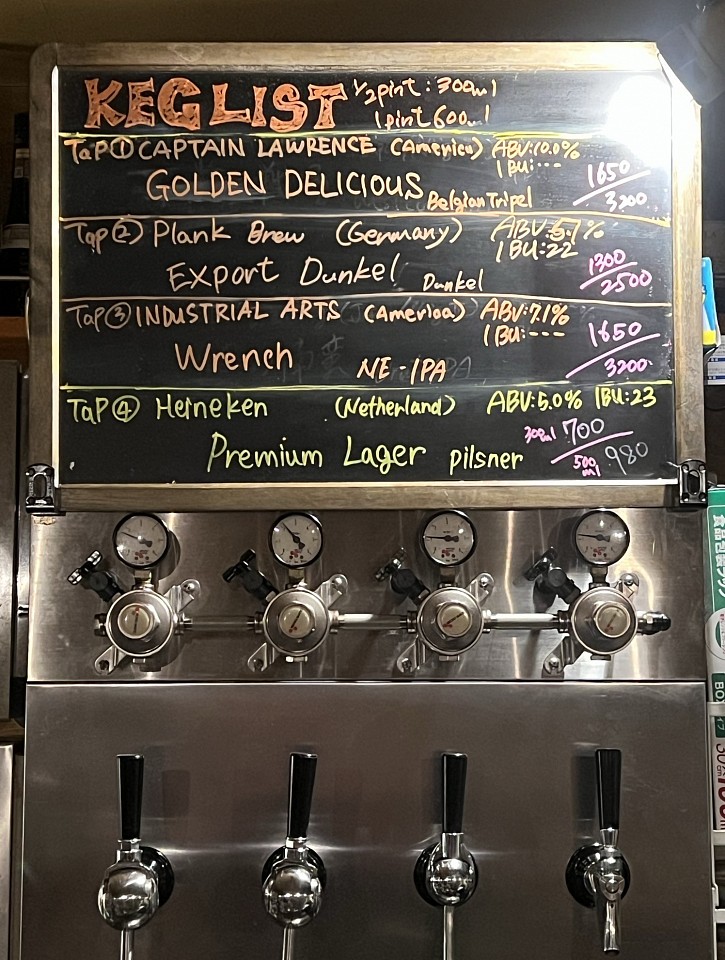 KEG LIST 1/2pint : 300ml
1pint 600ml
TaP① CAPTAIN LAWRENCE (America) ABV:10.0%
IBU:---
GOLDEN DELICIOUS Belgian Tripel 1650/3200
Tap② Plank Brew (Germany) ABV:5.7%
IBU:22
Export Dunkel Dunkel 1300/2500
TaP③ INDUSTRIAL ARTS (America) ABV:7.1%
IBU:---
Wrench NE-IPA 1650/3200
TaP④ Heineken (Netherland) ABV:5.0% IBU:23
Premium Lager pilsner 300ml 700/500ml 980